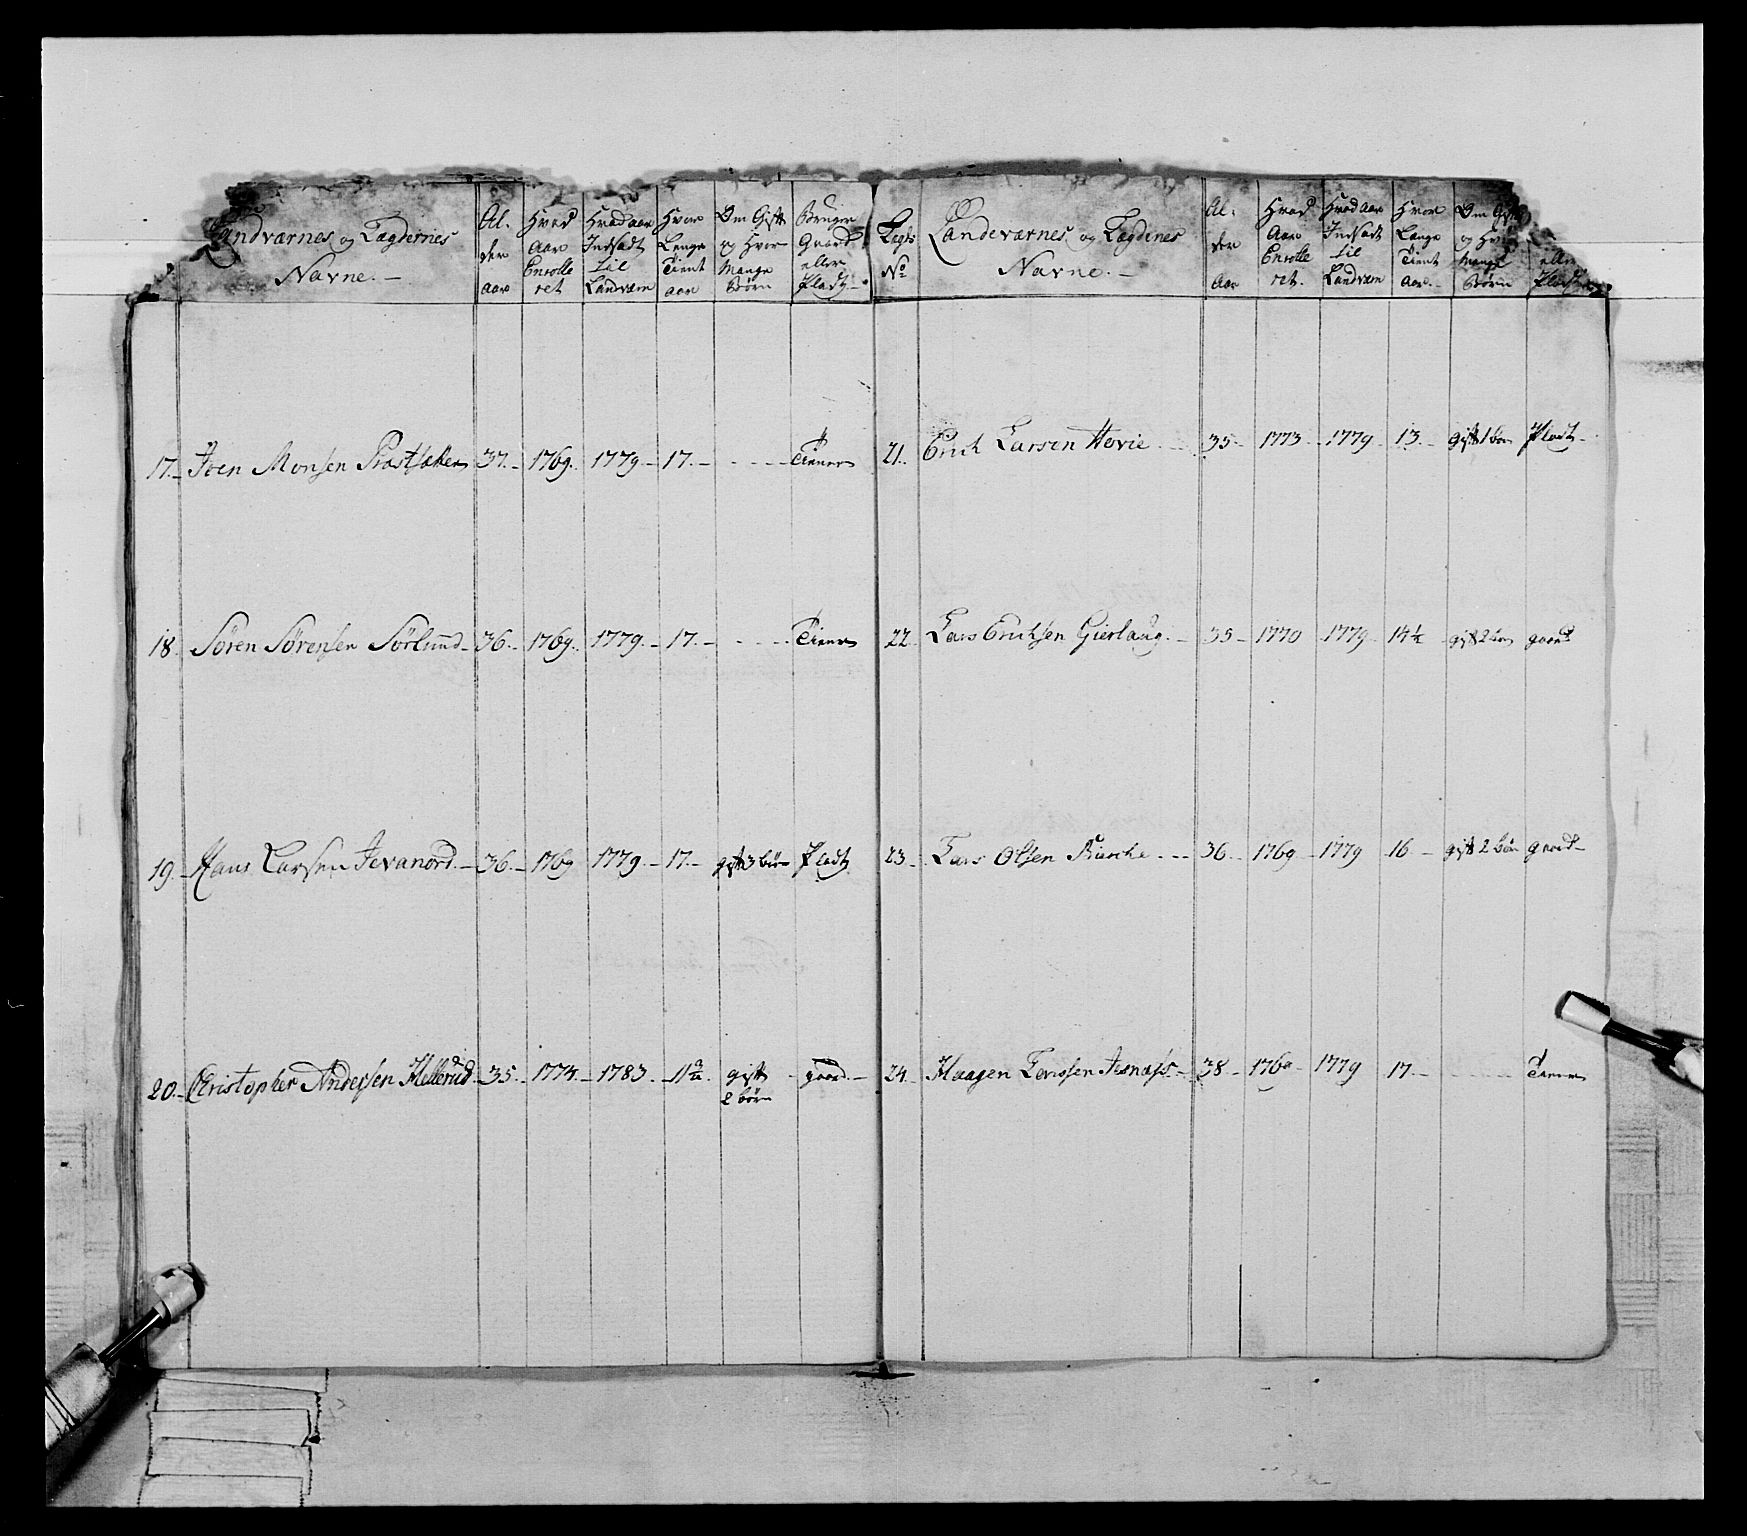 Landværnes og Lægdernes Navne. Al- der aar Hvad Aar Enrolle ret Hvad aar Indsadt til Landværn Hvor Længe Tient aar Om Gift og Hvor Mange Børn Bruger Gaard eller Pladz
17. Joen Monsen 37. 1769. 1779. 17. Tiener
18. Sören Sörensen Sörlund 36. 1769. 1779. 17. Tiener
19. Hans Larsen Jevanord. 36. 1769 1779. 17. gift 3 børn Pladz
20. Christopher Andersen Hellerud 35. 1774. 1783. gift 2 børn gaard.
Lægds No Landeværnes og Lægdenes Navne. Al- der Aar Hvad Aar Enrolle ret. Hvad Aar Indsadt til Landværn Hvor Længe Tient aar. Om Gift og Hvor Mange Børn eller Pladz
21. Erich Larsen Hovie 35. 1773. 1779. 13. gift 1 barn Pladz
22. Lars Erichsen Gierlaug. 35. 1770 1779. 14½ gift 2 børn gaard
23. Lars Olsen 36. 1769 1779 16 gift 2 børn gaard
24. Haagen 38. 1779 17. Tiener